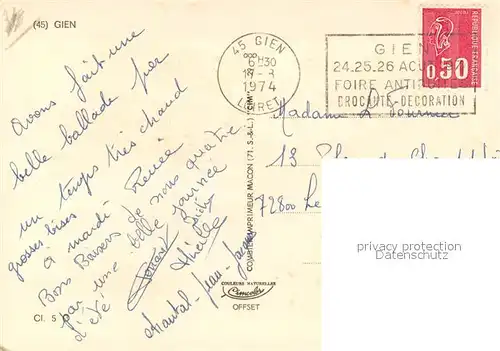 (45) GIEN
Avons fait une
belle ballade par
un temps très chaud
grosses bises Renée
à mardi
Bons Baisers de nous quatre
par une belle journée
d'été
Chantal - Jean-Jacques
Cl. 5
COMBIER IMPRIMEUR MACON (71. S.-&-L.) "CIM"
COULEURS NATURELLES
Cimcolor
OFFSET
45 GIEN
6H30
1974
LOIRET
GIEN
24.25.26 AOU
FOIRE ANTI
BROCANTE-DECORATION
REPUBLIQUE FRANÇAISE
0,50
Madame L. Fournier
13
72800 Le
privacy protection
watermark